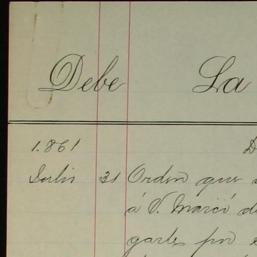 Debe La
1.861 D
Julio 31 Orden que
á D. Marcó d
garle por e